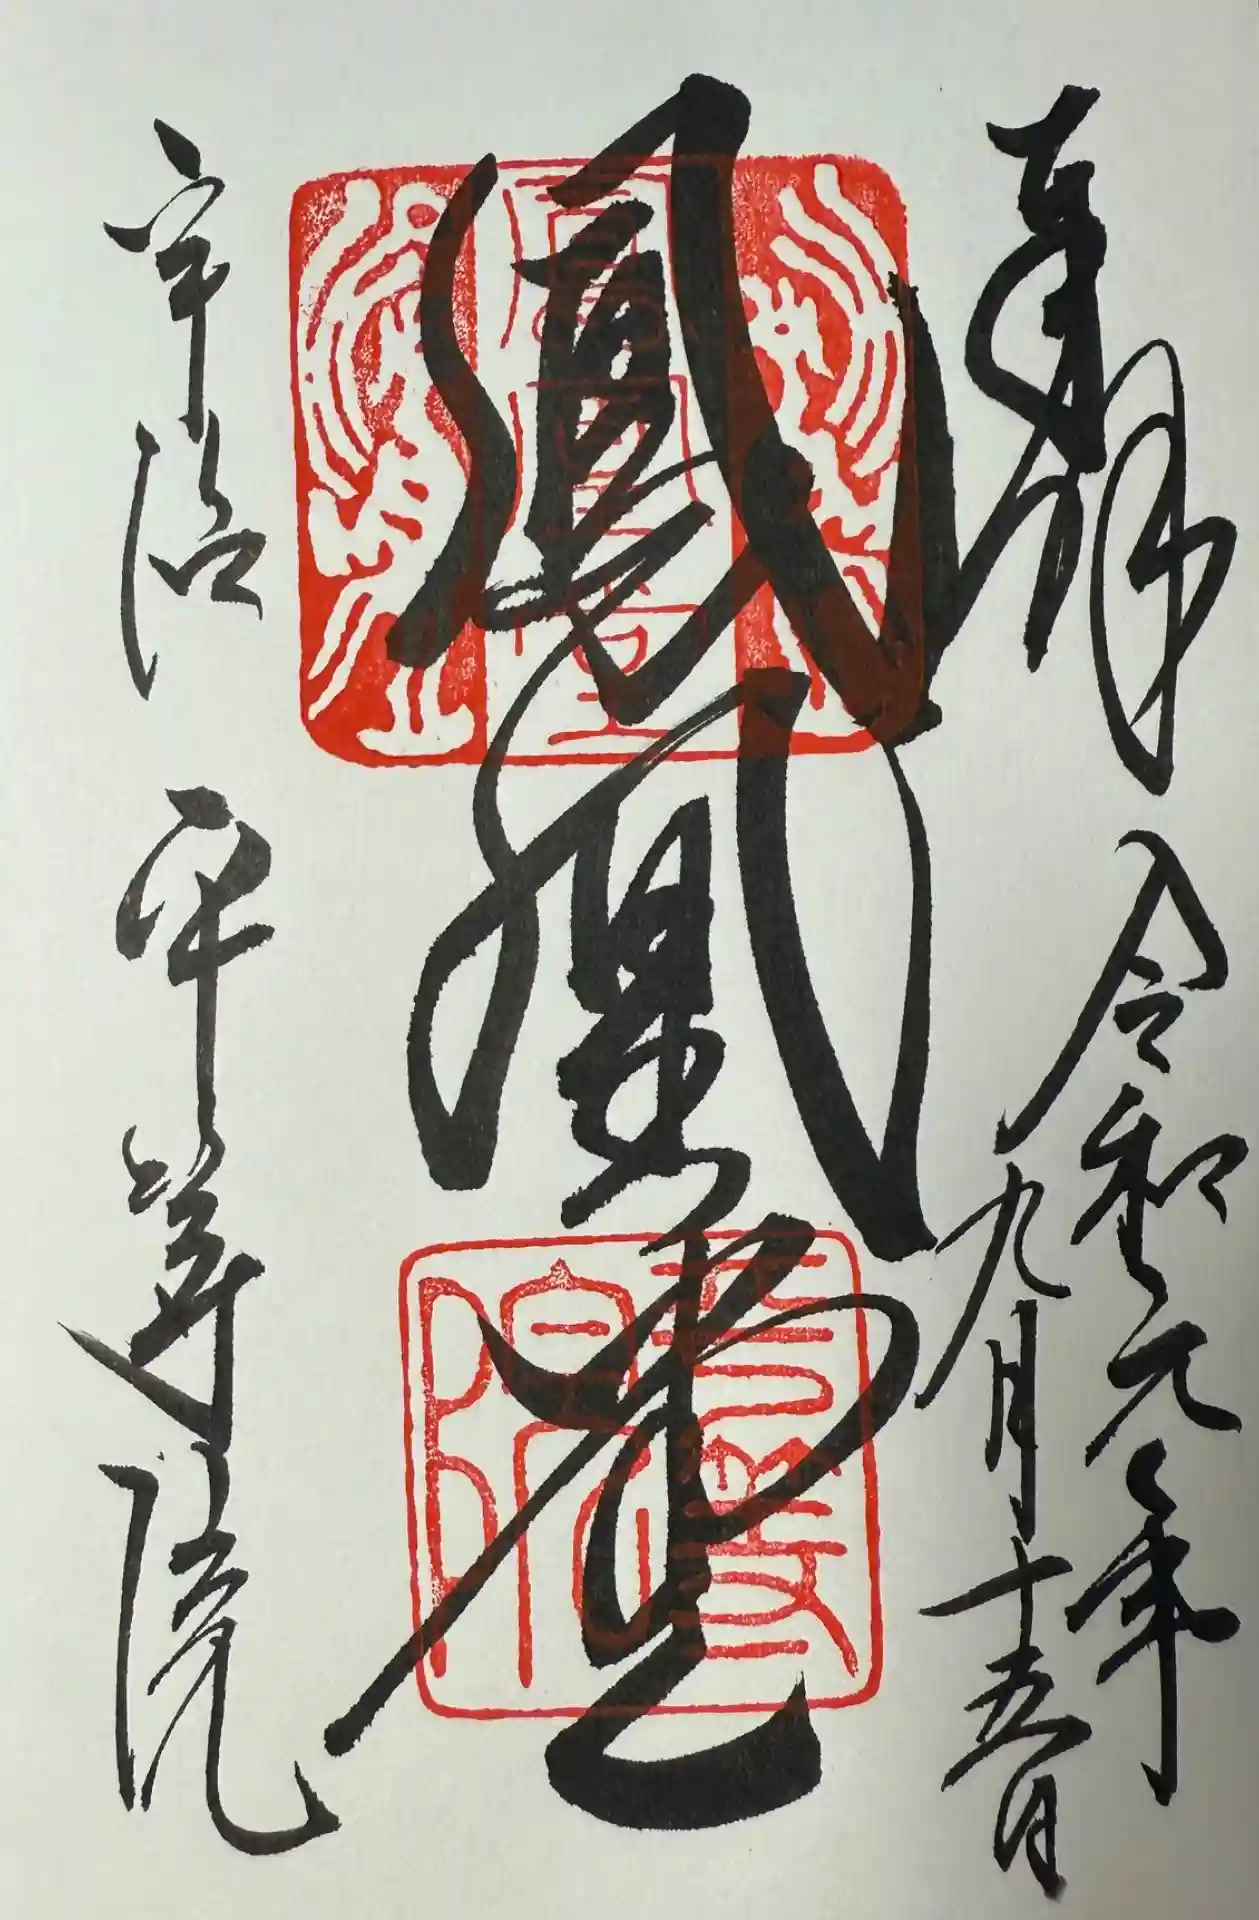 奉拝
令和元年
九月十五日
鳳凰堂
宇治 平等院